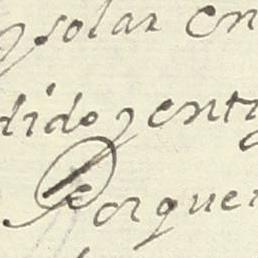 y solar en
dido, ent
Porque